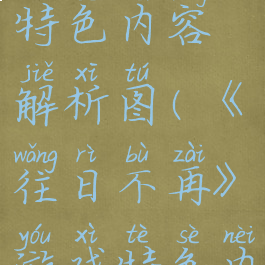 特色内容
jiě xī tú
解析图(《
wǎng rì bù zài
往日不再》
yóu xì tè sè nèi
游戏特色内